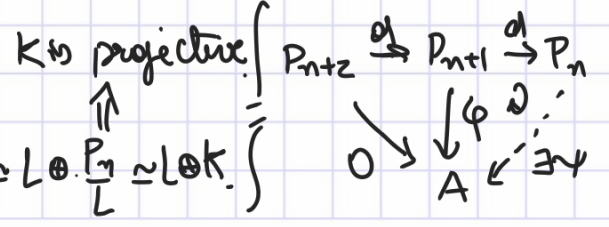 K is projective
⇑
≃ L ⊕ P_n/L ≃ L ⊕ K.
P_{n+2} →^d P_{n+1} →^d P_n
0 ↘ ↓ φ ⤸ ∃ψ
A